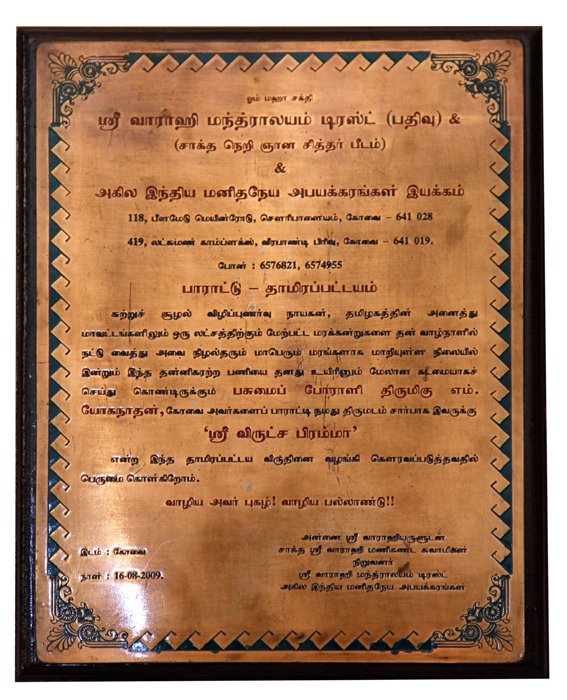 ஓம் மஹா சக்தி
ஸ்ரீ வாராஹி மந்த்ராலயம் டிரஸ்ட் (பதிவு) &
(சாக்த நெறி ஞான சித்தர் பீடம்)
&
அகில இந்திய மனிதநேய அபயக்கரங்கள் இயக்கம்
118, பீளமேடு மெயின்ரோடு, சௌரிபாளையம், கோவை – 641 028
419, லட்சுமண் காம்ப்ளக்ஸ், வீரபாண்டி பிரிவு, கோவை – 641 019.
போன் : 6576821, 6574955
பாராட்டு – தாமிரப்பட்டயம்
சுற்றுச் சூழல் விழிப்புணர்வு நாயகன், தமிழகத்தின் அனைத்து
மாவட்டங்களிலும் ஒரு லட்சத்திற்கும் மேற்பட்ட மரக்கன்றுகளை தன் வாழ்நாளில்
நட்டு வைத்து அவை நிழல்தரும் மாபெரும் மரங்களாக மாறியுள்ள நிலையில்
இன்றும் இந்த தன்னிகரற்ற பணியை தனது உயிரினும் மேலான கடமையாகச்
செய்து கொண்டிருக்கும் பசுமைப் போராளி திருமிகு எம்.
யோகநாதன், கோவை அவர்களைப் பாராட்டி நமது திருமடம் சார்பாக இவருக்கு
‘ஸ்ரீ விருட்ச பிரம்மா’
என்ற இந்த தாமிரப்பட்டய விருதினை வழங்கி கௌரவப்படுத்துவதில்
பெருமை கொள்கிறோம்.
வாழிய அவர் புகழ்! வாழிய பல்லாண்டு!!
அன்னை ஸ்ரீ வாராஹியருளுடன்
இடம் : கோவை சாக்த ஸ்ரீ வாராஹி மணிகண்ட சுவாமிகள்
நிறுவனர்
நாள் : 16-08-2009. ஸ்ரீ வாராஹி மந்த்ராலயம் டிரஸ்ட்
அகில இந்திய மனிதநேய அபயக்கரங்கள்